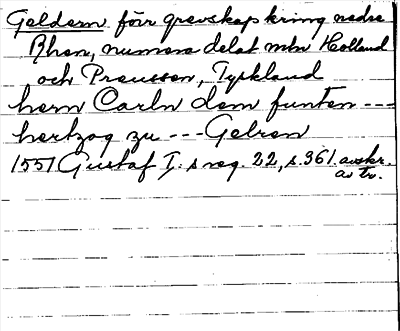 Geldern förr grevskap kring nedre
Rhen, numera delat mln Holland
och Preussen, Tyskland
hern Carln dem funten ---
hertzog zu --- Gelren
1551 Gustaf I:s reg. 22, s. 361 avskr.
av tr.